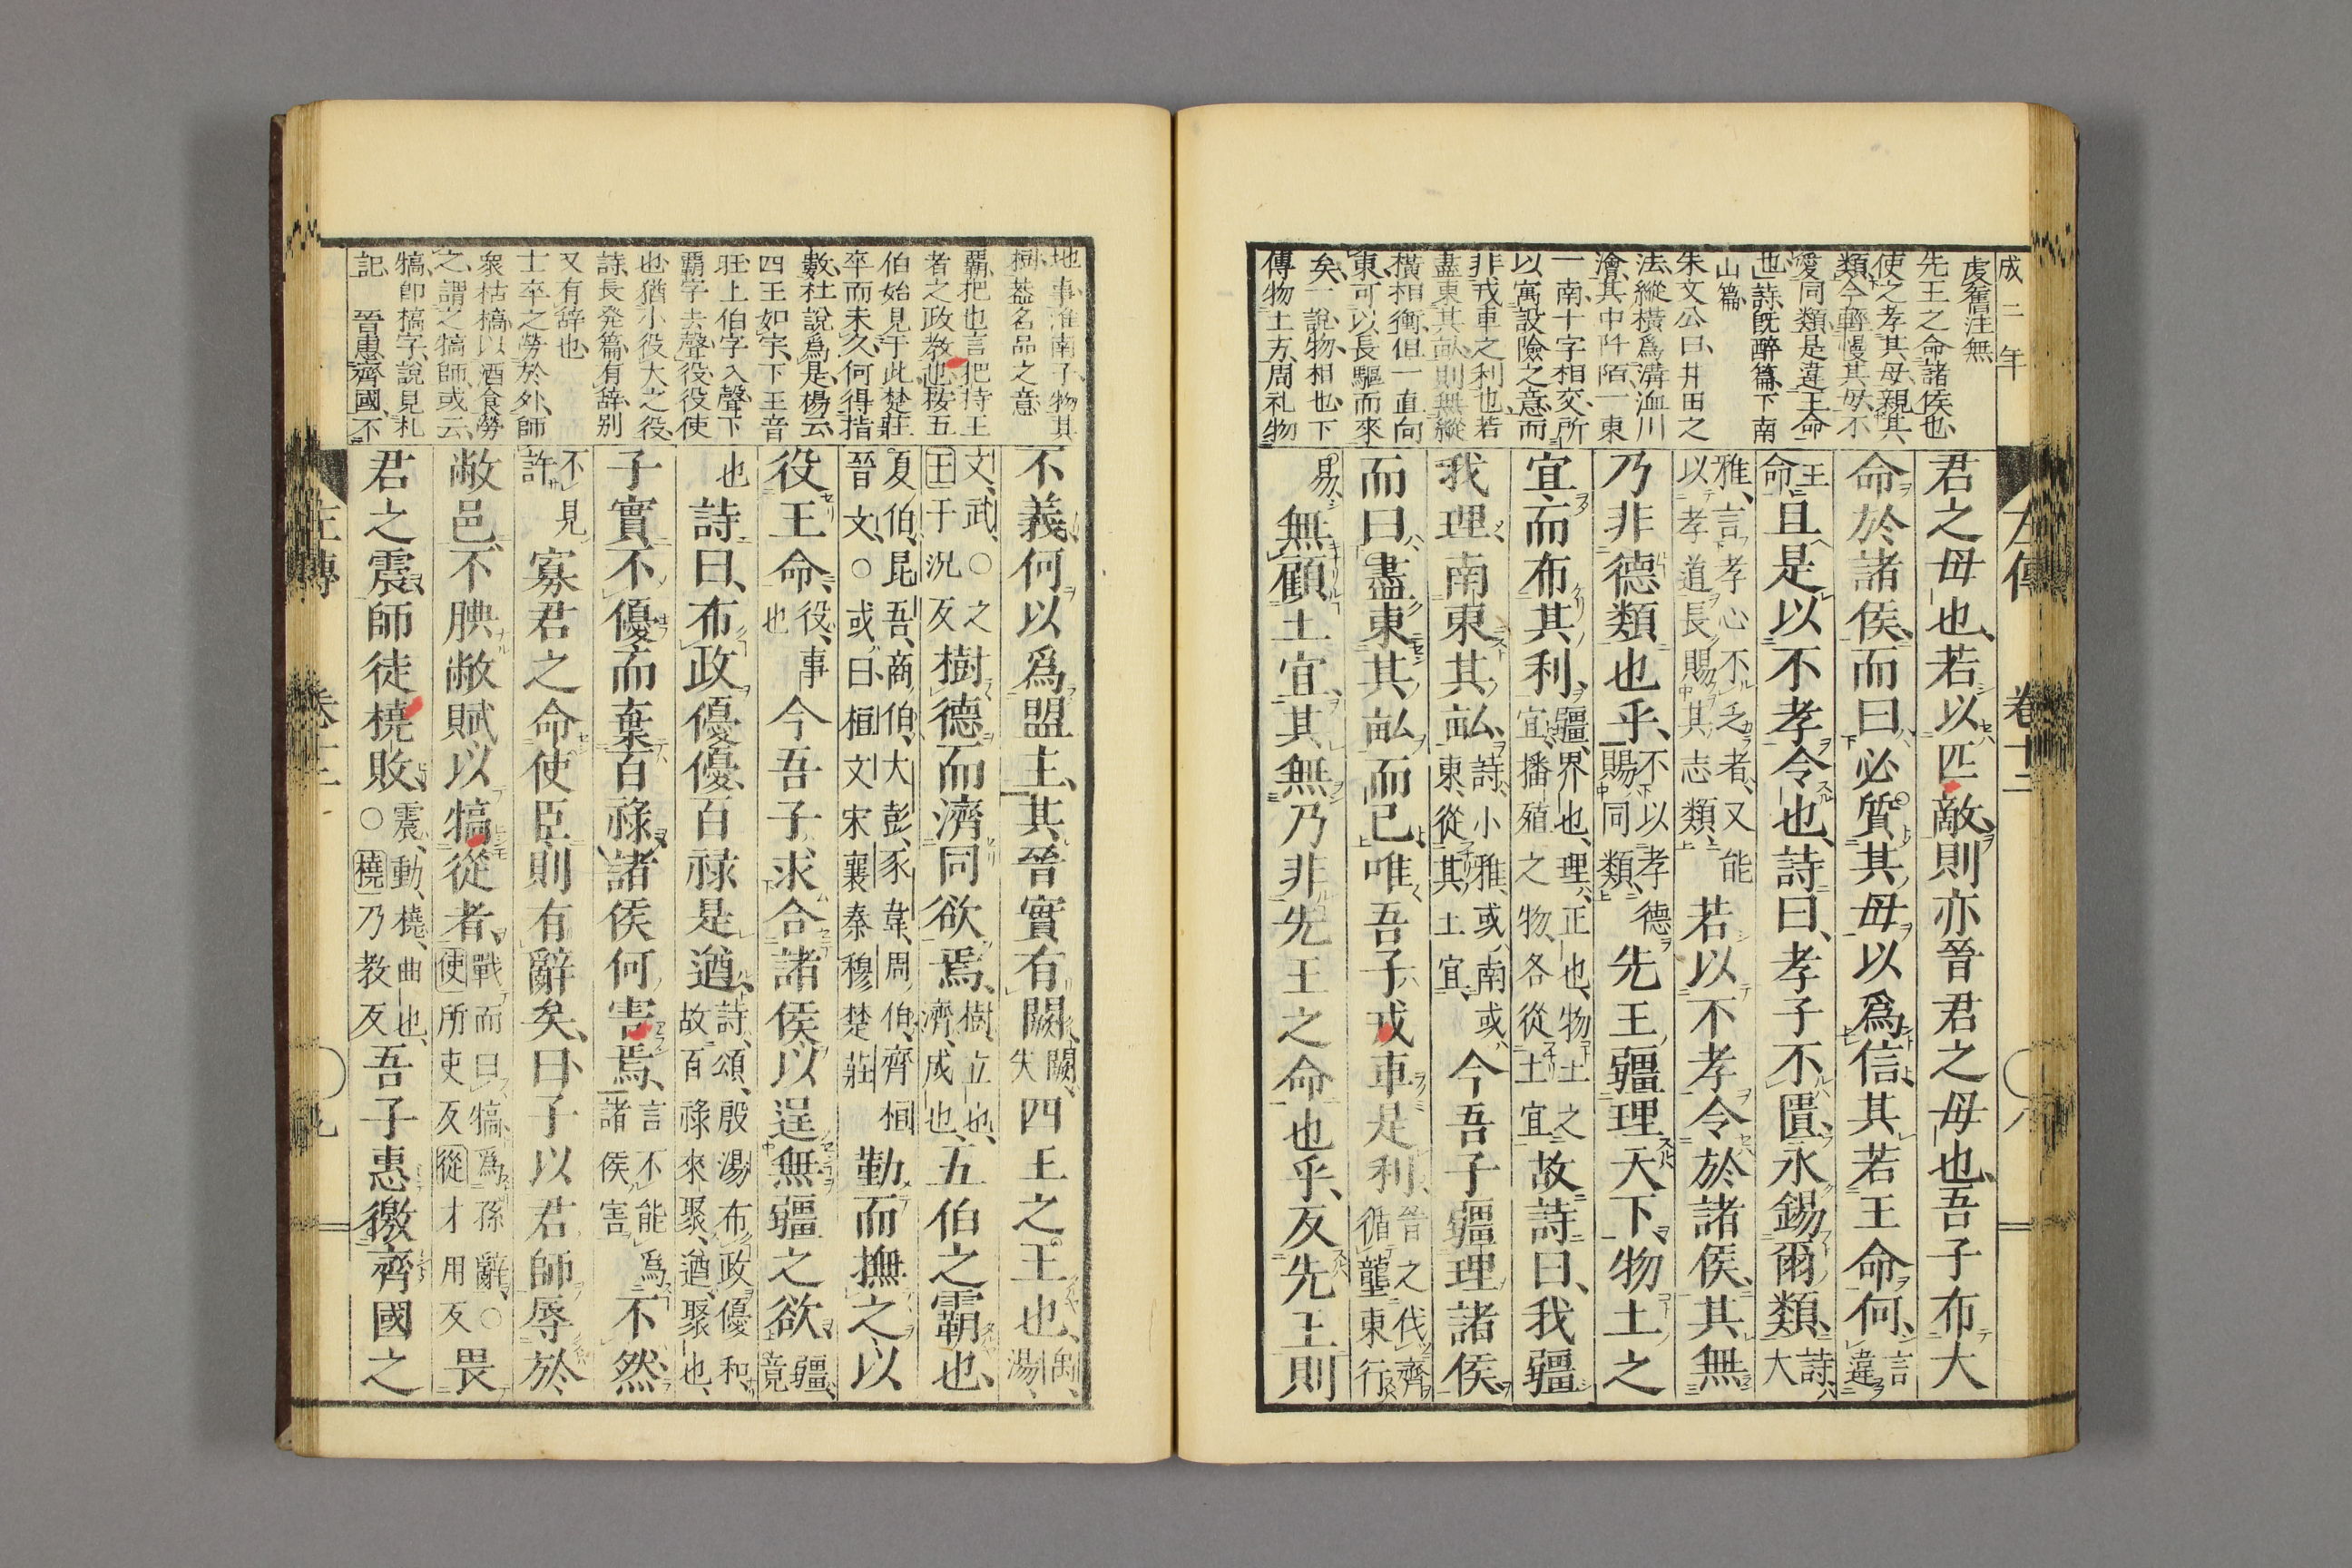 成二年
虔舊注無
先王之命諸侯也、
使之孝其母、親其
類、今輕慢其母、不
愛同類、是違王命
也、詩、既醉篇、下南
山篇、
朱文公曰、井田之
法、縱橫爲溝洫川
澮、其中阡陌、一東
一南、十字相交、所
以寓設險之意、而
非戎車之利也、若
盡東其畝、則無縱
橫相衡、但一直向
東、可以長驅而來
矣、一說、物、相也、下
傳物土方、周礼物
左傳　卷十二　八
君之母也、若以匹敵、則亦晉君之母也、吾子布大
命於諸侯、而曰、必質其母以爲信、其若王命何、言違
王命、且是以不孝令也、詩曰、孝子不匱、永錫爾類、詩、大
雅、言孝心不乏者、又能以孝道長賜其志類、若以不孝令於諸侯、其無
乃非德類也乎、不以孝德賜同類、先王疆理天下、物土之
宜、而布其利、疆、界也、理、正也、物土之宜、播殖之物、各從土宜、故詩曰、我疆
我理、南東其畝、詩、小雅、或南或東、從其土宜、今吾子疆理諸侯、
而曰、盡東其畝而已、唯吾子戎車是利、晉之伐齊、循壟東行
易、無顧土宜、其無乃非先王之命也乎、反先王則
地事、淮南子、物其
樹、蓋名品之意
覇、把也、言把持王
者之政教也、按五
伯始見于此、楚莊
卒而未久、何得指
數、杜說爲是、楊云、
四王如字、下王音
旺、上伯字入聲、下
覇字去聲、役、役使
也、猶小役大之役、
詩、長発篇、有辞、别
又有辞也、
士卒之勞於外、師
衆枯槁、以酒食勞
之、謂之犒師、或云、
犒、即槁字、說見札
記、　晉惠齊國、不
不義、何以爲盟主、其晉實有闕、闕、失四王之王也、禹、湯、
文、武、○之王于況反樹德而濟同欲焉、樹、立也、濟、成也、五伯之霸也、
夏伯昆吾、商伯大彭、豕韋、周伯齊桓晉文、○或曰、桓文宋襄秦穆楚莊勤而撫之、以
役王命、役、事也今吾子求合諸侯、以逞無疆之欲、疆、竟
也詩曰、布政優優、百祿是遒、詩、頌、殷湯布政優和、故百祿來聚、遒、聚也、
子實不優、而棄百祿、諸侯何害焉、言不能爲諸侯害、不然、
不見許、寡君之命使臣、則有辭矣、曰、子以君師辱於
敝邑、不腆敝賦、以犒從者、戰而曰犒、爲孫辭、○使所吏反從才用反畏
君之震、師徒橈敗、震、動、橈、曲也、○橈乃教反吾子惠徼齊國之
左傳　卷十二　九